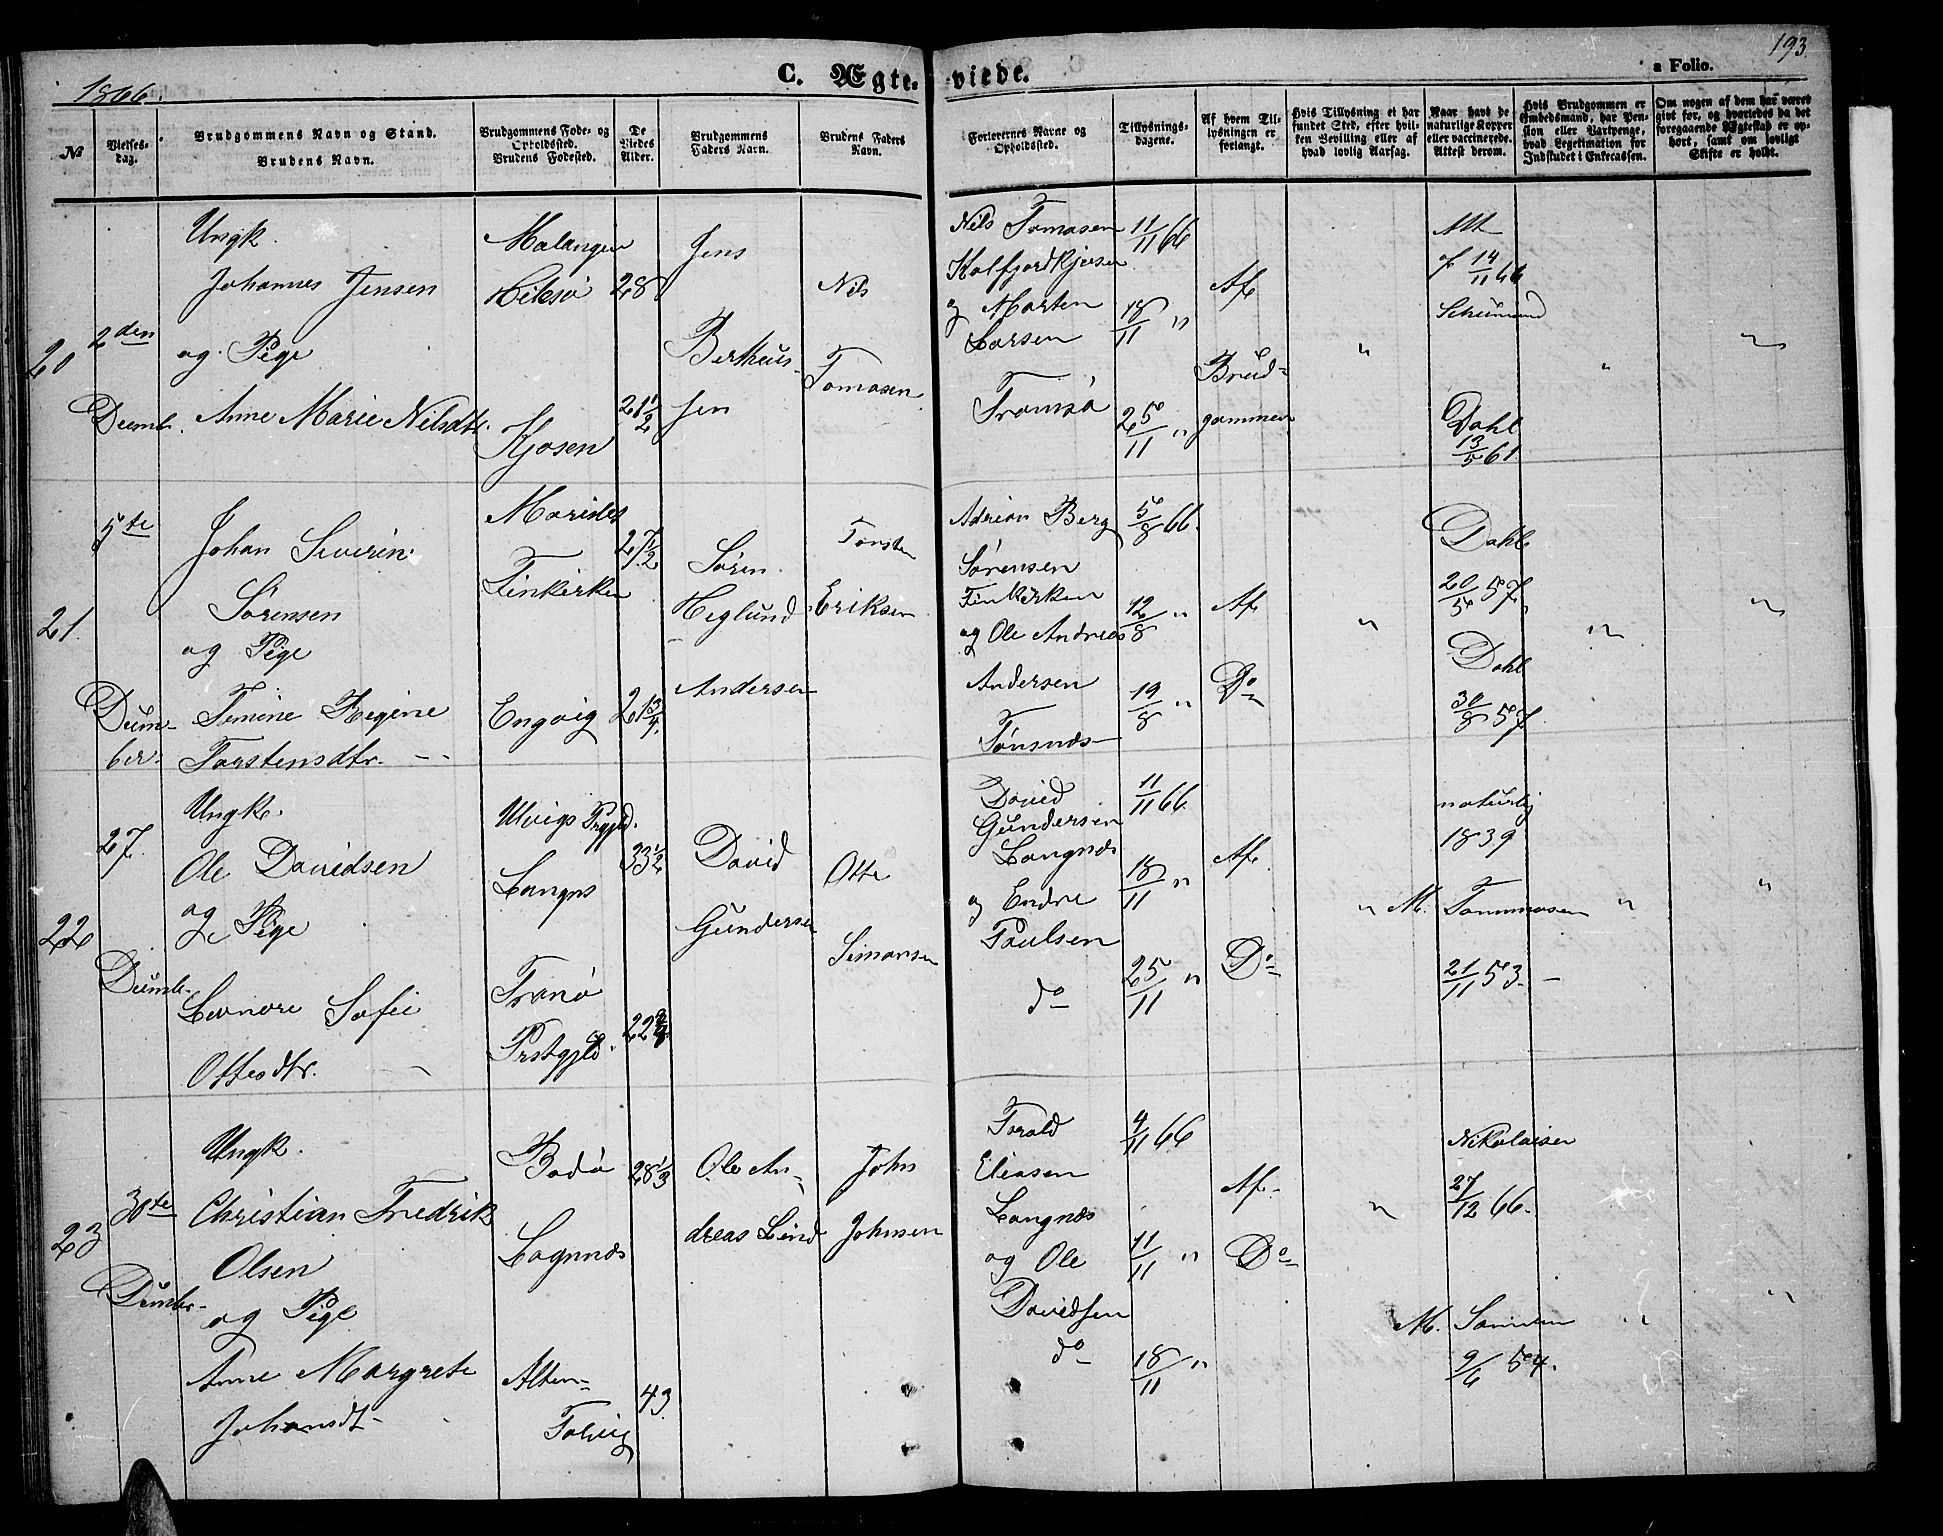 193.
1866.
C. Ægte-viede.
a Folio.
No
Vielses-
dag.
Brudgommens Navn og Stand.
Brudens Navn.
Brudgommens Føde- og
Opholdssted.
Brudens Fødested.
De
Viedes
Alder.
Brudgommens
Faders Navn.
Brudens Faders
Navn.
Forlovernes Navne og
Opholdssted.
Tillysnings-
dagene.
Af hvem Til-
lysningen er
forlangt.
Hvis Tillysning et har
fundet Sted, efter hvil-
ken Bevilling eller af
hvad lovlig Aarsag.
Naar havt de
naturlige Kopper
eller vaccinerede.
Attest derom.
Hvis Brudgommen er
Embedsmand, har Pen-
sion eller Vartpenge,
hvad Legitimation for
Indskudet i Enkecassen.
Om nogen af dem har været
gift før, og hvorledes da det
foregaaende Ægteskab er op-
hørt, samt om lovligt
Skifte er holdt.
20
2den
Decmb.
Ungk.
Johannes Jensen
og Pige
Anne Marie Nilsdtr.
Malangen
Kjosen
28
21 1/2
Jens
Bertheus-
sen
Nils
Tomasen
Nils Tomasen
og Morten
Larsen
Tromsø
11/11 66
18/11 "
25/11 "
Af
Brud-
gommen
"
Att
af 14/11 66
Dahl
13/5 61.
"
"
21.
5te
Decm-
ber.
Johan Severin
Sørensen
og Pige
Regine
Torstensdtr. - -
Finkirken
Engvig
27 1/2
21 3/4.
Søren
Heglund
Andersen
Torsten
Eriksen
Adrian Berg
Sørensen
Finkirken
og Ole Andreas
Andersen
Tønsnæs
5/8 66.
12/8 "
19/8 "
Af
Do
"
Dahl
20/5 57,
Dahl
30/8 57.
"
"
22
27.
Decmb.
Ungk.
Ole Davidsen
og Pige
Lernore Sofie
Ottesdtr.
Langnes
Tranø
Prstgjld.
33 1/2
David
Gundersen
Otte
Simonsen
David
Gundersen
Langnæs
og Endre
Paulsen
do
11/11 66
18/11 "
25/11 "
Af
Do
"
naturlig
1839
M. Tommasen
21/11 53. -
"
"
23
30te
Decmbr.
Ungk.
Christian Fredrik
Olsen
og Pige
Anne Margrete
Johansdt
Bodø
Lagnnæs
Alten-
Talvig
28 1/3
43
Ole An-
dreas Lind
John
Johnsen
Torald
Eliasen
Langnæs
og Ole
Davidsen
do
4/11 66
11/11 "
18/11 "
Af
Do
"
Nikolaisen
27/12 66.
M.
9/6 54.
"
"